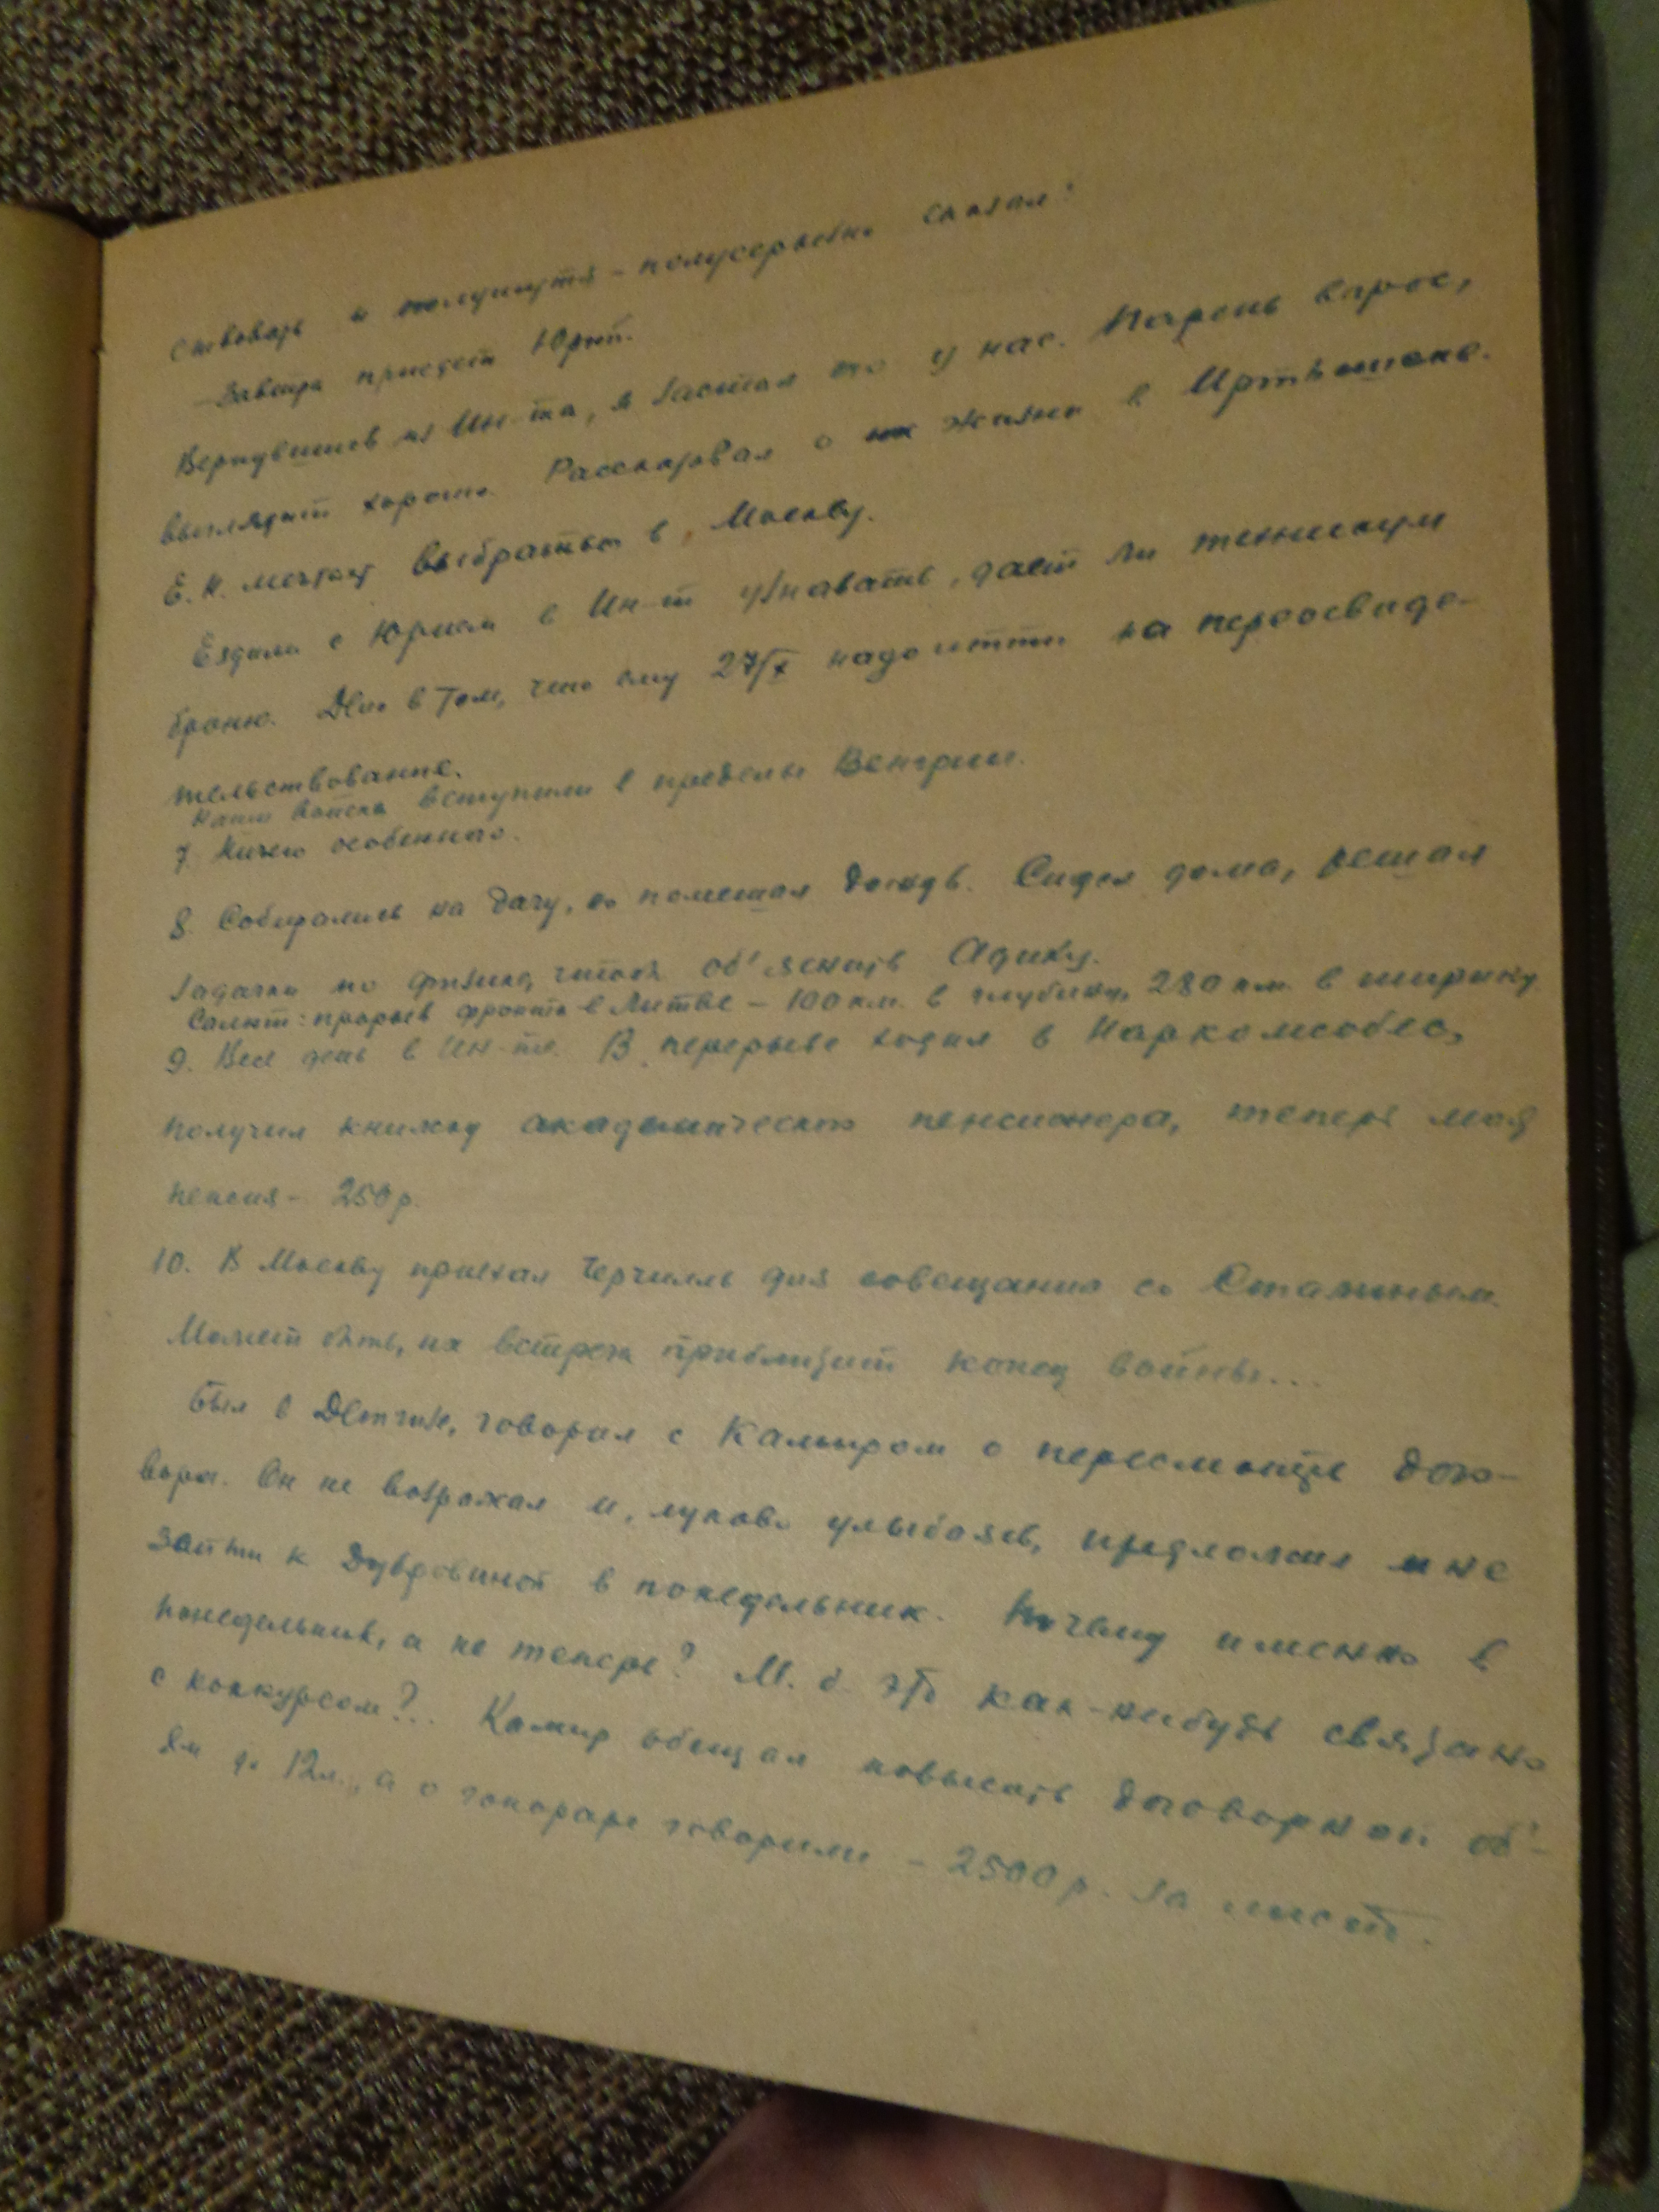 ствовать и полушутя-полусерьезно сказал:
— Завтра приедет Юрий.
Вернувшись из Ин-та, я застал его у нас. Парень вырос,
выглядит хорошо. Рассказывал о жизни в Иртышске.
Е.Н. мечтает выбраться в Москву.
Ездили с Юрием в Ин-т узнавать, дает ли техникум
броню. Дело в том, что ему 27/X надо итти на переосвиде-
тельствование.
Наши войска вступили в пределы Венгрии.
7. Ничего особенного.
8. Собирались на дачу, но помешал дождь. Сидел дома, решал
задачки по физике, чтобы об'яснить Адику.
Салют: прорыв фронта в Литве – 100 км. в глубину, 280 км. в ширину
9. Весь день в Ин-те. В перерыве ходил в Наркомсобес,
получил книжку академического пенсионера, теперь моя
пенсия – 250 р.
10. В Москву приехал Черчилль для совещания со Сталиным.
Может быть, их встреча приблизит конец войны...
Был в Детгизе, говорил с Камиром о пересмотре дого-
вора. Он не возражал и, лукаво улыбаясь, предложил мне
зайти к Дубровиной в понедельник. Почему именно в
понедельник, а не теперь? М.б. это как-нибудь связано
с конкурсом?.. Камир обещал повысить договорной об'-
ем до 12 л., а о гонораре говорили – 2500 р. за лист.